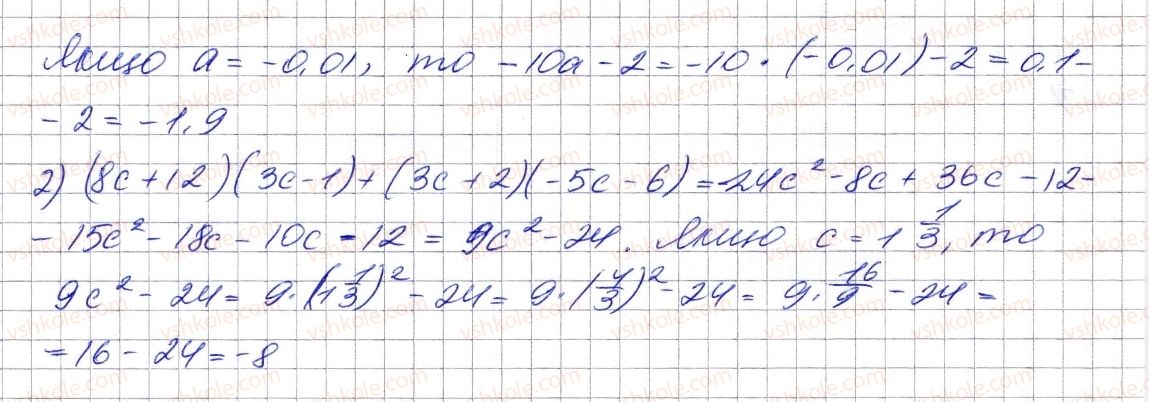 Якщо a = -0,01, то -10a - 2 = -10 · (-0,01) - 2 = 0,1 -
- 2 = -1,9
2) (8c + 12)(3c - 1) + (3c + 2)(-5c - 6) = 24c² - 8c + 36c - 12 -
- 15c² - 18c - 10c - 12 = 9c² - 24. Якщо c = 1 1/3, то
9c² - 24 = 9 · (1 1/3)² - 24 = 9 · (4/3)² - 24 = 9 · 16/9 - 24 =
= 16 - 24 = -8